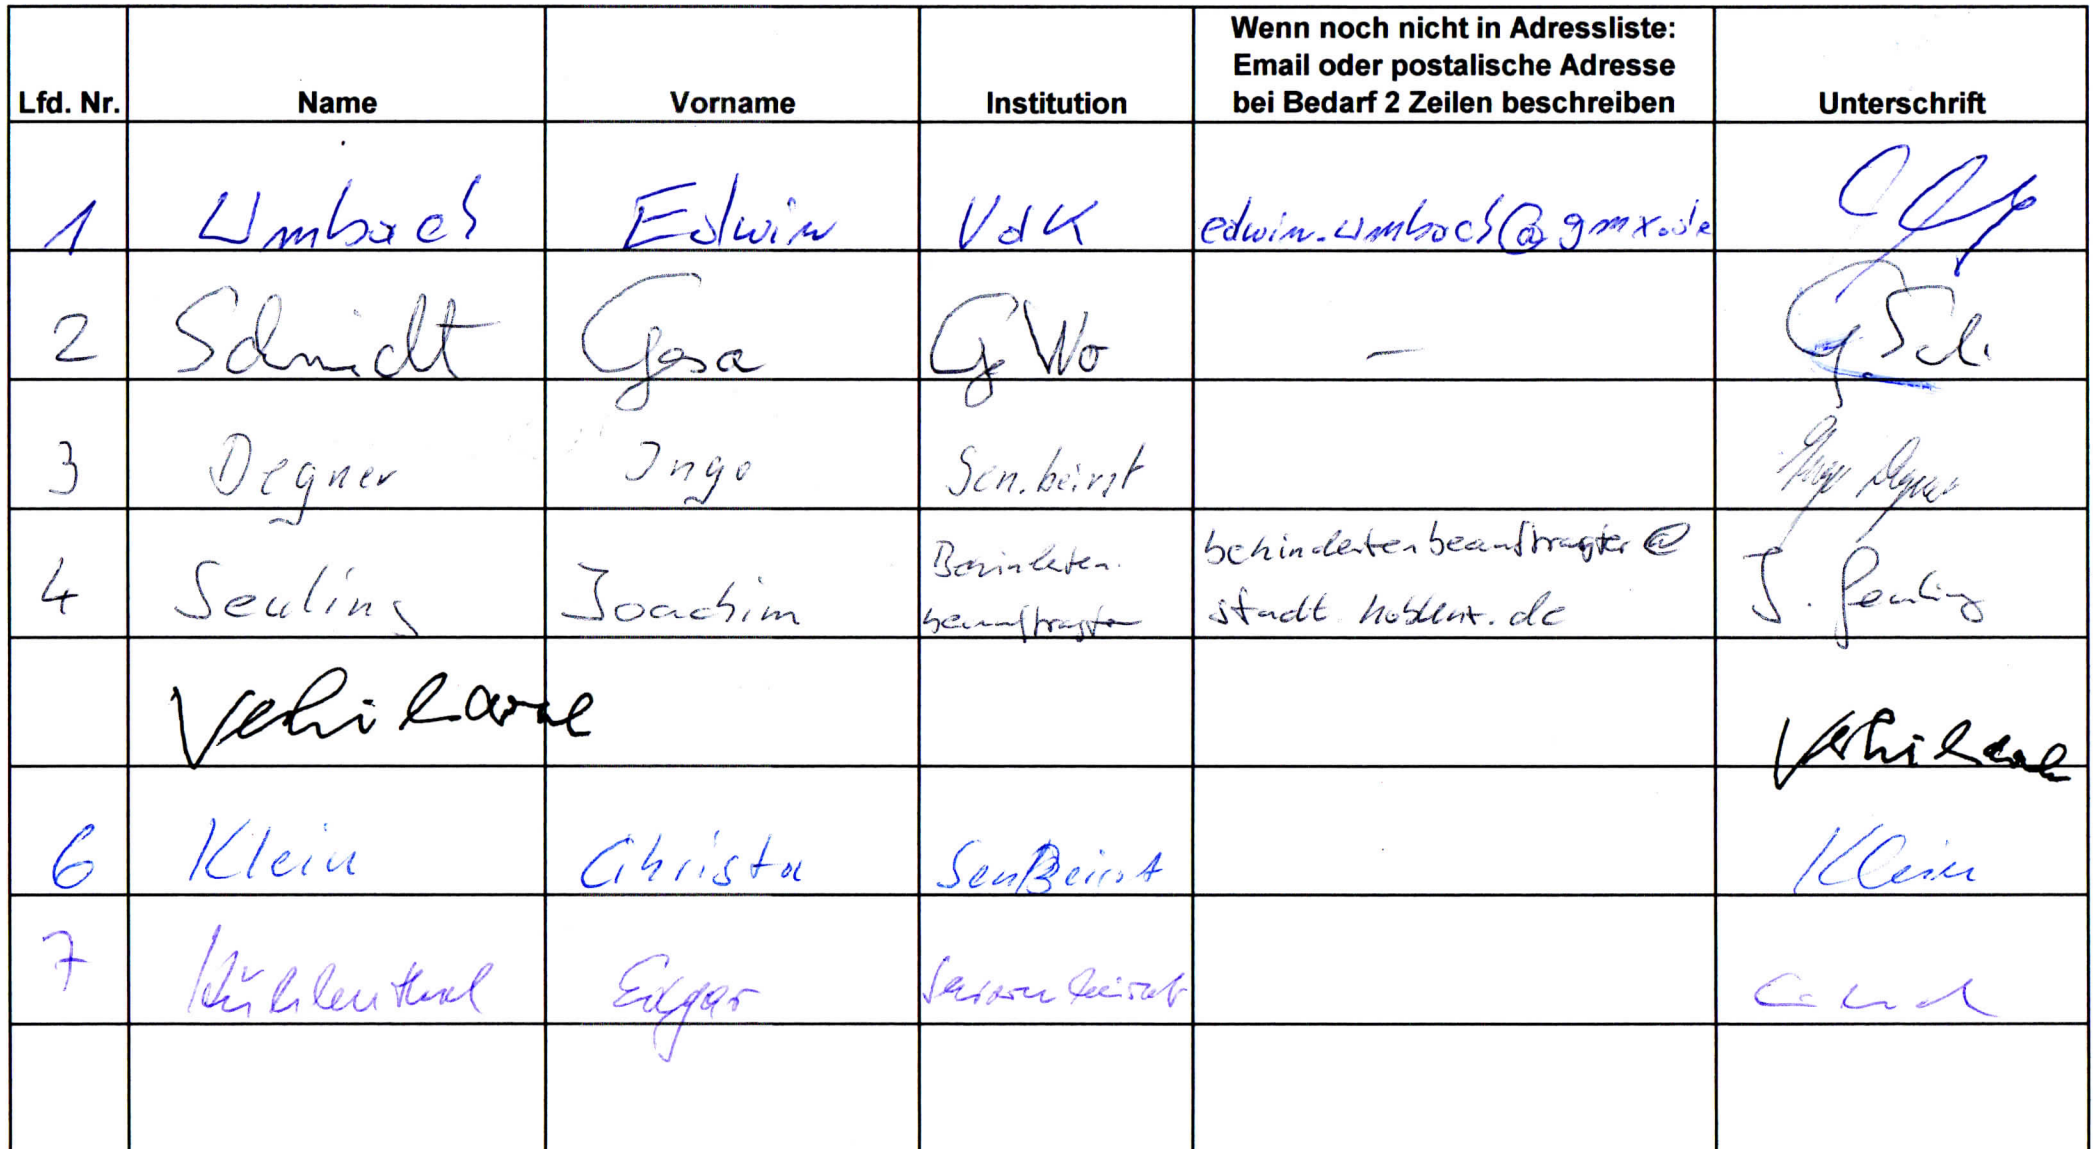 Lfd. Nr. Name Vorname Institution Wenn noch nicht in Adressliste: Email oder postalische Adresse bei Bedarf 2 Zeilen beschreiben Unterschrift
1 Umbach Edwin VdK edwin.umbach@gmx.de
2 Schmidt Gesa GWo – G. Sch.
3 Degner Ingo Sen.beirat Ingo Degner
4 Seuling Joachim Behinderten- behindertenbeauftragter@ J. Seuling
beauftragter stadt.koblenz.de
6 Klein Christa SenBeirat Klein
7 Kühlenthal Edgar Seniorenbeirat